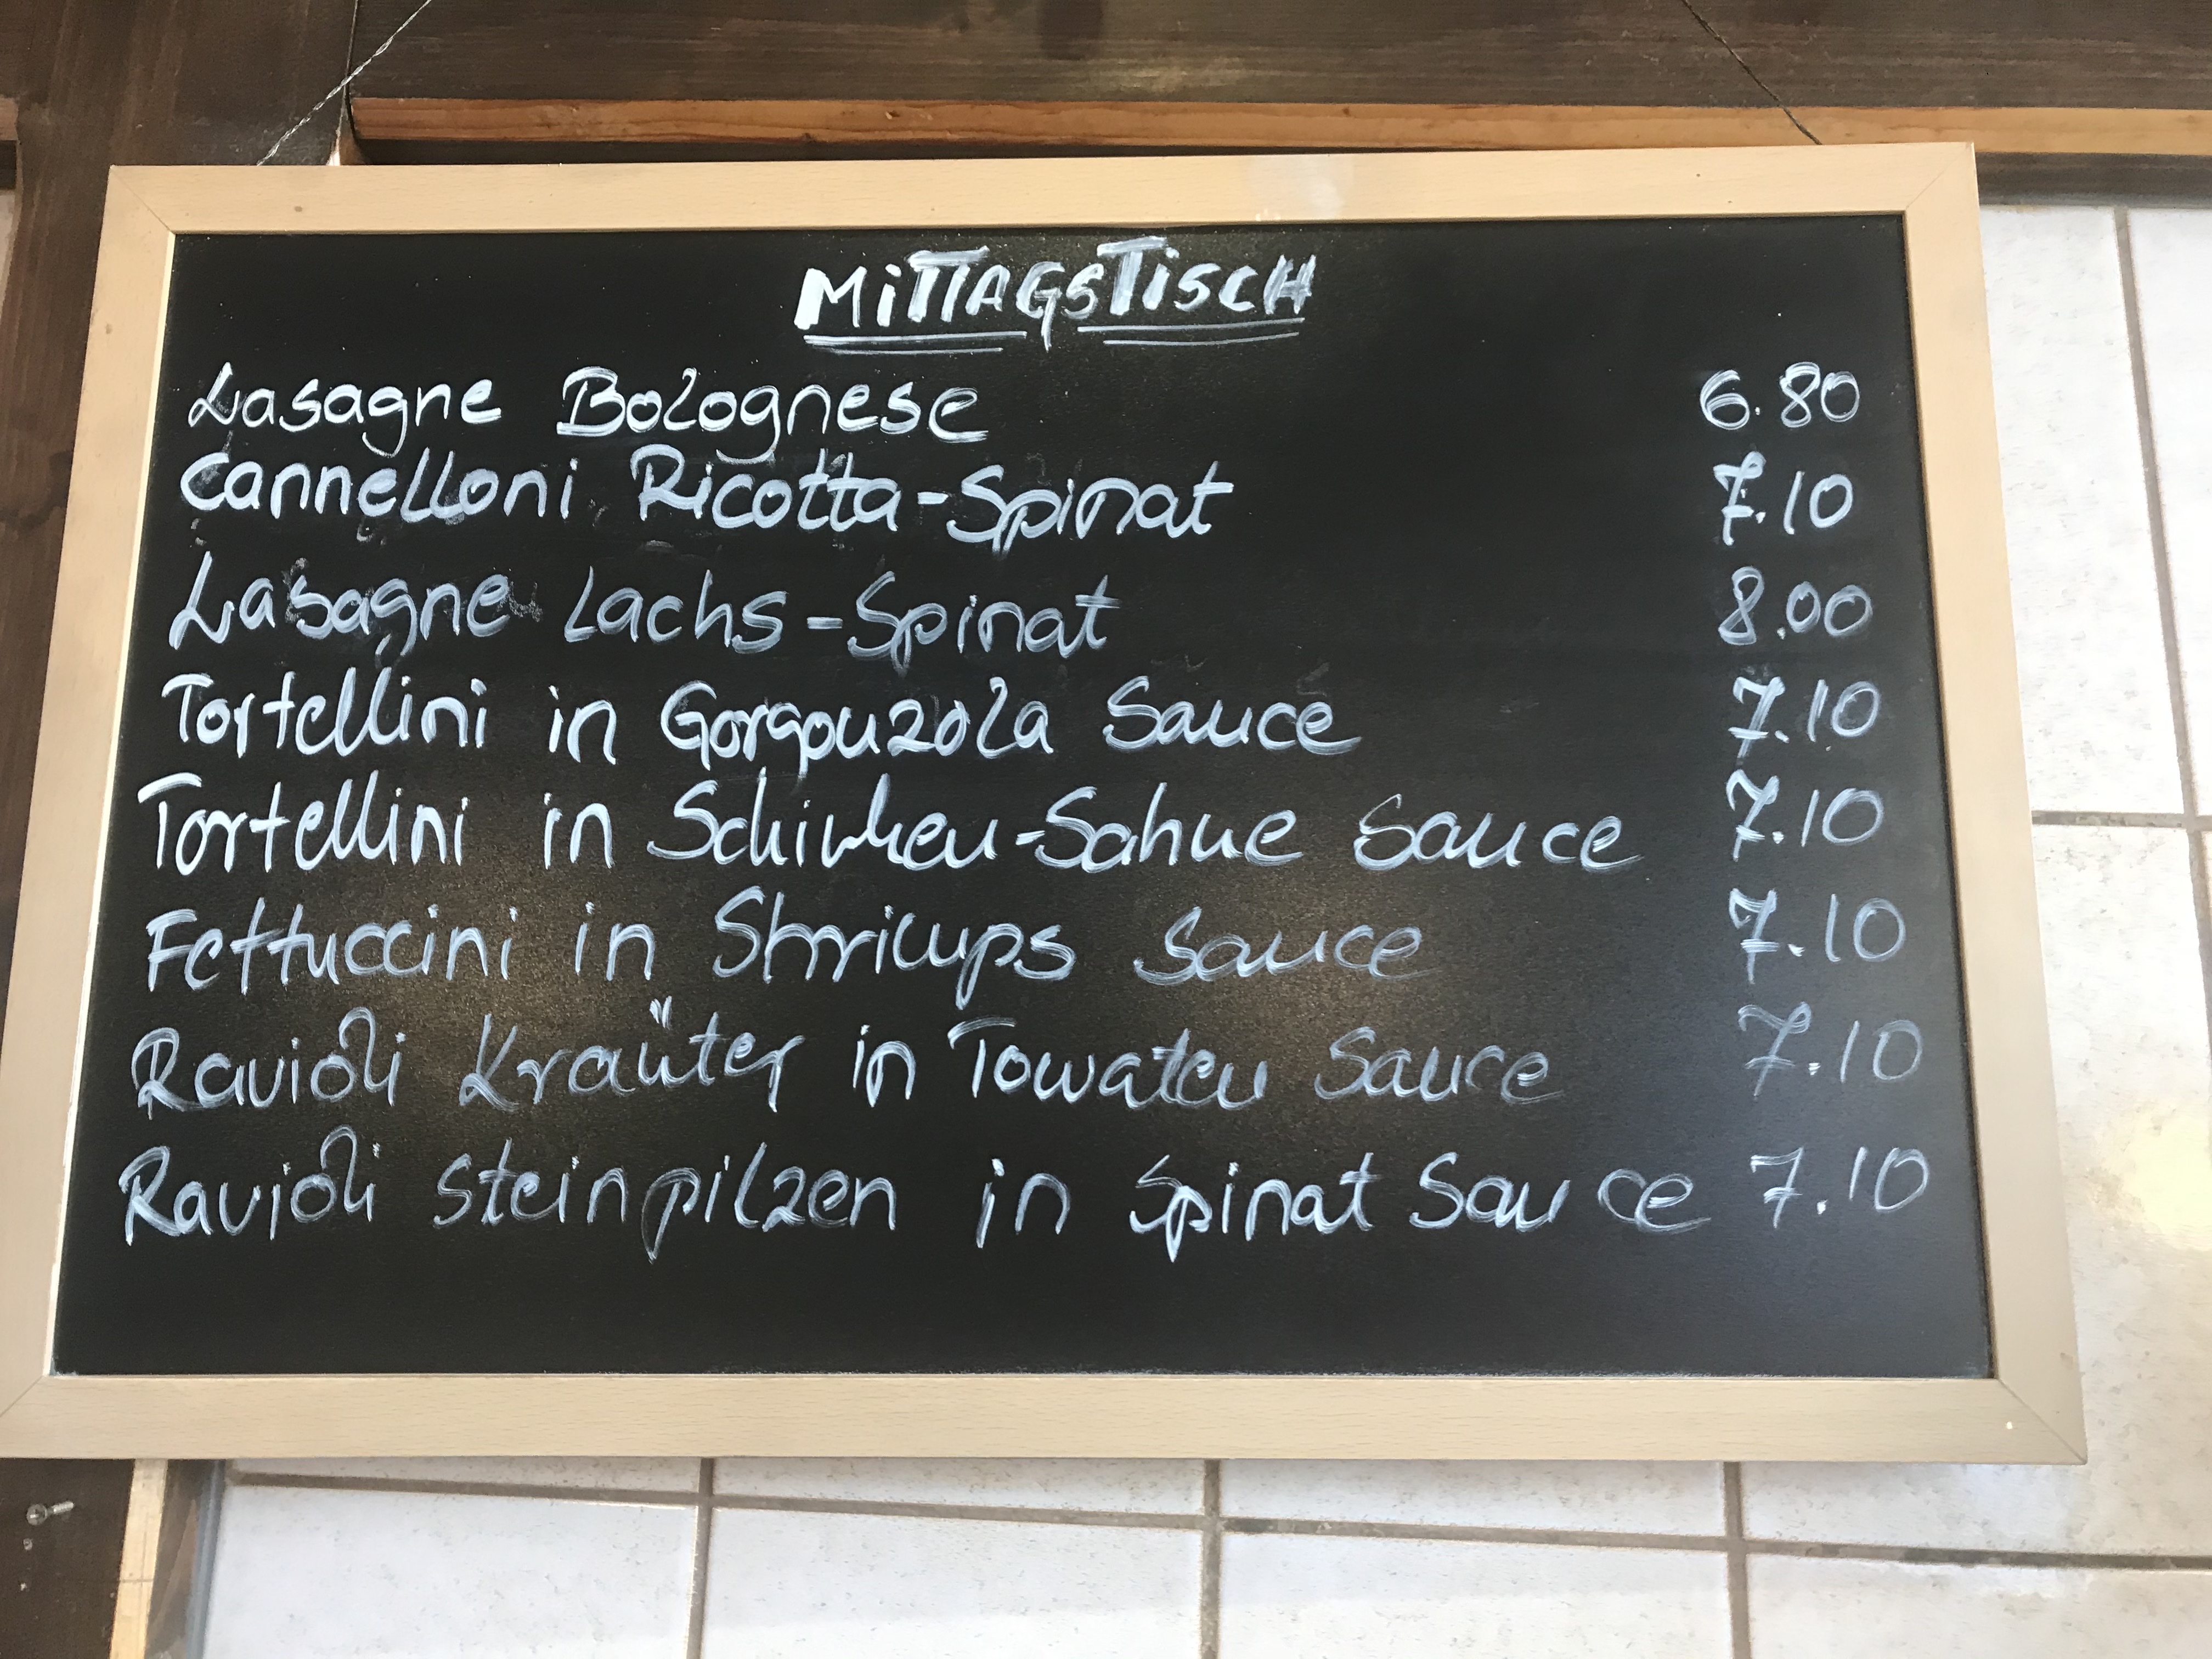 MITTAGSTISCH
Lasagne Bolognese 6.80
Cannelloni Ricotta-Spinat 7.10
Lasagne Lachs-Spinat 8.00
Tortellini in Gorgonzola Sauce 7.10
Tortellini in Schinken-Sahne Sauce 7.10
Fettuccini in Shrimps Sauce 7.10
Ravioli Kraüter in Tomaten Sauce 7.10
Ravioli Steinpilzen in Spinat Sauce 7.10